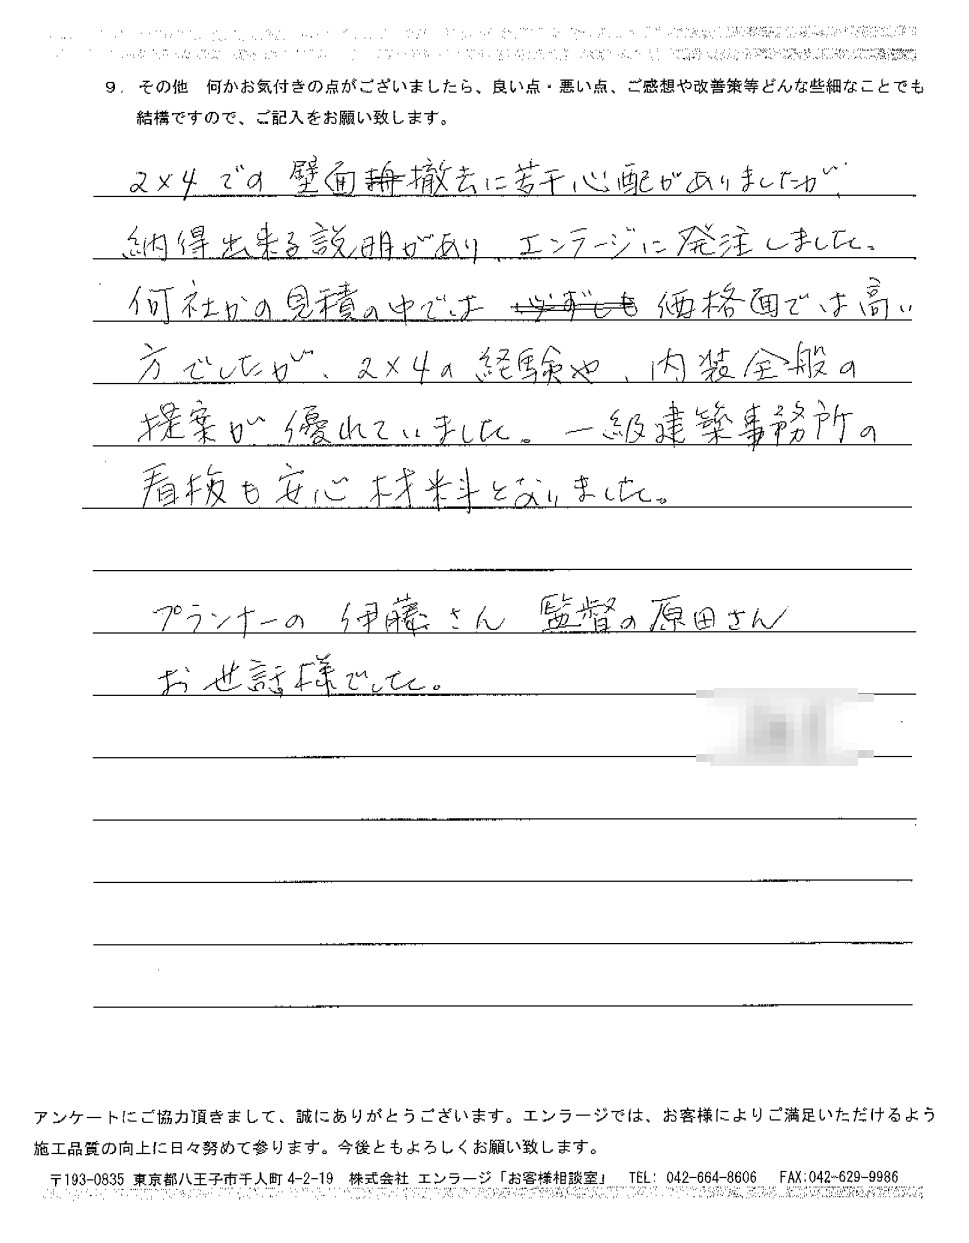 9．その他　何かお気付きの点がございましたら、良い点・悪い点、ご感想や改善策等どんな些細なことでも
結構ですので、ご記入をお願い致します。
2×4での壁面撤去に若干心配がありましたが、
納得出来る説明があり、エンラージに発注しました。
何社かの見積の中では 必ずしも 価格面では高い
方でしたが、2×4の経験や、内装全般の
提案が優れていました。一級建築事務所の
看板も安心材料となりました。
プランナーの 伊藤さん 監督の原田さん
お世話様でした。
アンケートにご協力頂きまして、誠にありがとうございます。エンラージでは、お客様によりご満足いただけるよう
施工品質の向上に日々努めて参ります。今後ともよろしくお願い致します。
〒193-0835 東京都八王子市千人町 4-2-19　株式会社 エンラージ「お客様相談室」　TEL: 042-664-8606　FAX:042-629-9986